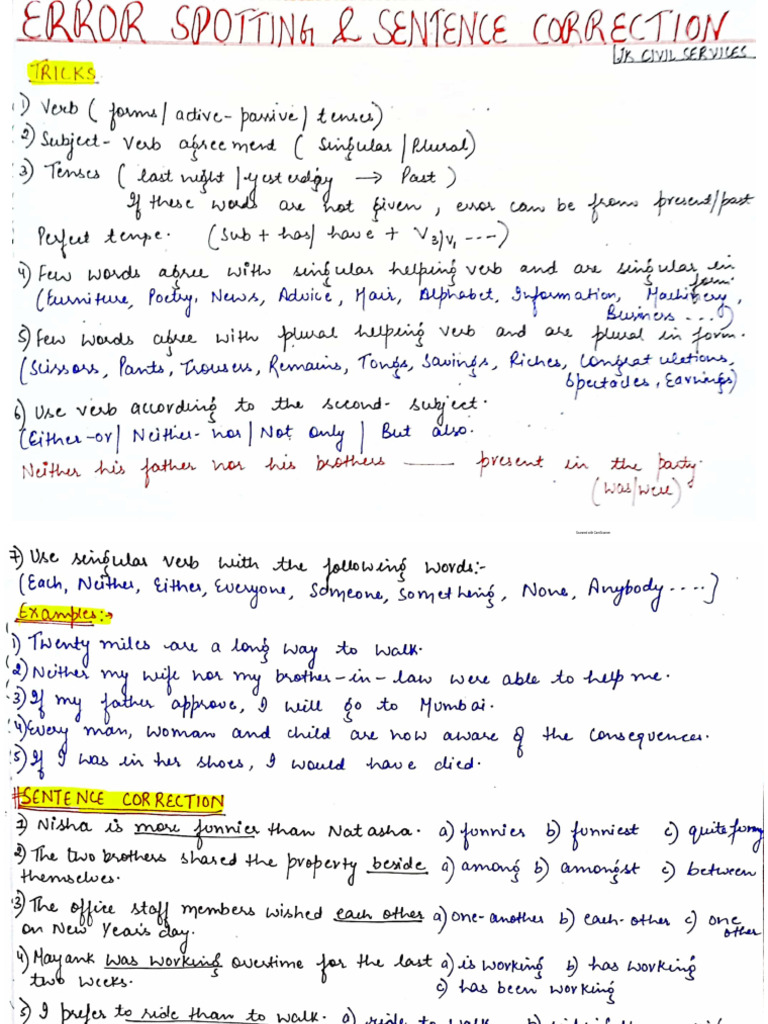 ERROR SPOTTING & SENTENCE CORRECTION
JK CIVIL SERVICES
TRICKS
1) Verb ( forms/ active-passive/ tenses)
2) Subject-verb agreement ( Singular/Plural)
3) Tenses ( last night/yesterday → Past )
If these words are not given, error can be from present/past
Perfect tense. (Sub + has/ have + V3/V1 ----)
4) Few words agree with singular helping verb and are singular in form.
(Furniture, Poetry, News, Advice, Hair, Alphabet, Information, Machinery,
Business ....)
5) Few words agree with plural helping verb and are plural in form.
(Scissors, Pants, Trousers, Remains, Tongs, Savings, Riches, Congratulations,
Spectacles, Earnings)
6) Use verb according to the second- subject.
(Either-or/ Neither-nor/ Not only / But also.
Neither his father nor his brothers —— present in the party.
(was/were)
Scanned with CamScanner
7) Use singular verb with the following words:-
(Each, Neither, Either, Everyone, Someone, Something, None, Anybody ....)
Examples:→
1) Twenty miles are a long way to walk.
2) Neither my wife nor my brother-in-law were able to help me.
3) If my father approve, I will go to Mumbai.
4) Every man, woman and child are now aware of the consequences.
5) If I was in her shoes, I would have died.
#SENTENCE CORRECTION
1) Nisha is more funnier than Natasha. a) funnier b) funniest c) quite funny
2) The two brothers shared the property beside a) among b) amongst c) between
themselves.
3) The office staff members wished each other a) one-another b) each-other c) one other
on New Year's day.
4) Mayank was working overtime for the last a) is working b) has working
two weeks. c) has been working
5) I prefer to ride than to walk. a) ride to walk